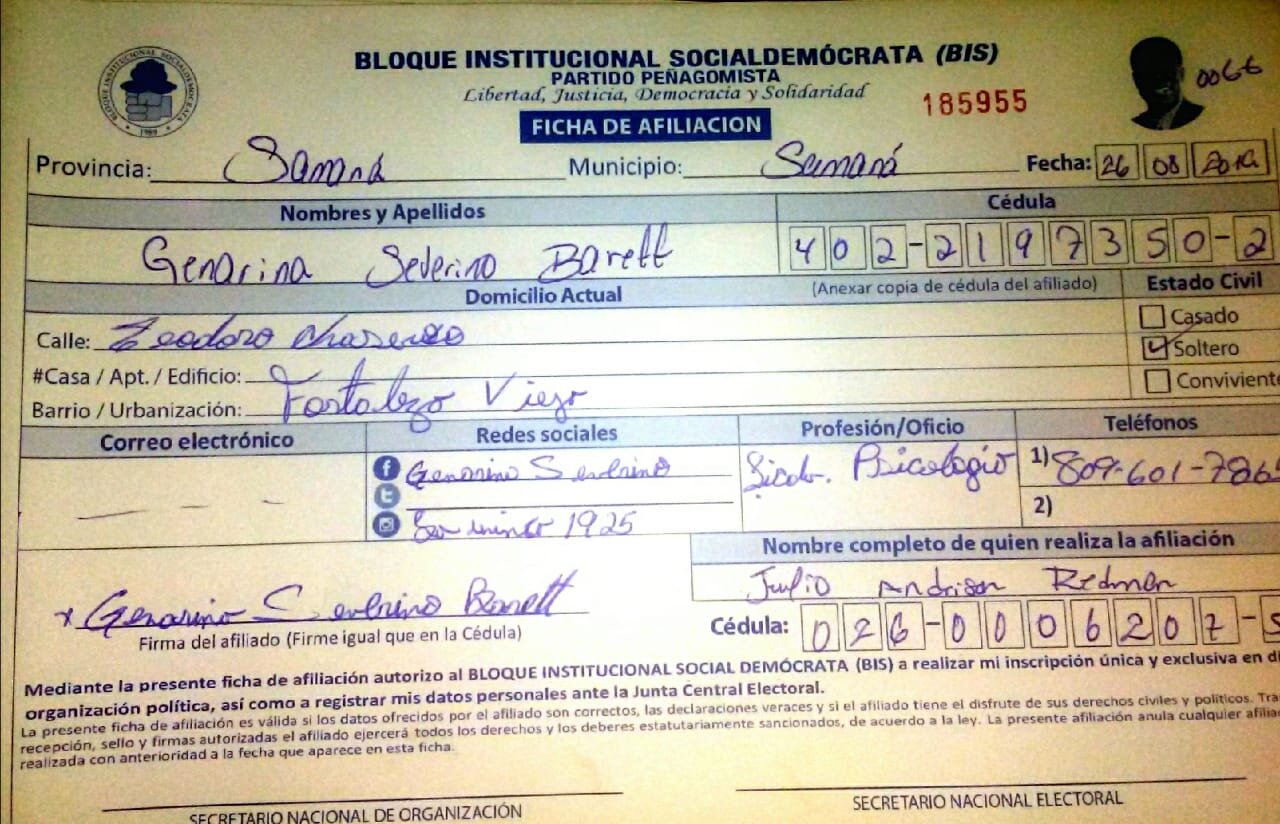 BLOQUE INSTITUCIONAL SOCIALDEMÓCRATA (BIS)
PARTIDO PEÑAGOMISTA
Libertad, Justicia, Democracia y Solidaridad
185955
0066
FICHA DE AFILIACION
Provincia: Samaná Municipio: Samaná Fecha: 26 08
Nombres y Apellidos Cédula
Genarina Severino Barett 402-2197350-2
Domicilio Actual (Anexar copia de cédula del afiliado) Estado Civil
Calle: Teodoro Casado
Soltero
#Casa / Apt. / Edificio: Conviviente
Barrio / Urbanización: Fortaleza Vieja
Correo electrónico Redes sociales Profesión/Oficio Teléfonos
Genarina Severino Psicologia 1) 809-601-786
2)
1925
Nombre completo de quien realiza la afiliación
Julio Andrison Redman
x Genarino Severino Barett
Firma del afiliado (Firme igual que en la Cédula) Cédula: 026-0006207-5
Mediante la presente ficha de afiliación autorizo al BLOQUE INSTITUCIONAL SOCIAL DEMÓCRATA (BIS) a realizar mi inscripción única y exclusiva en di
organización política, así como a registrar mis datos personales ante la Junta Central Electoral.
La presente ficha de afiliación es válida si los datos ofrecidos por el afiliado son correctos, las declaraciones veraces y si el afiliado tiene el disfrute de sus derechos civiles y políticos. Tra
recepción, sello y firmas autorizadas el afiliado ejercerá todos los derechos y los deberes estatutariamente sancionados, de acuerdo a la ley. La presente afiliación anula cualquier afilia
realizada con anterioridad a la fecha que aparece en esta ficha.
SECRETARIO NACIONAL DE ORGANIZACIÓN SECRETARIO NACIONAL ELECTORAL